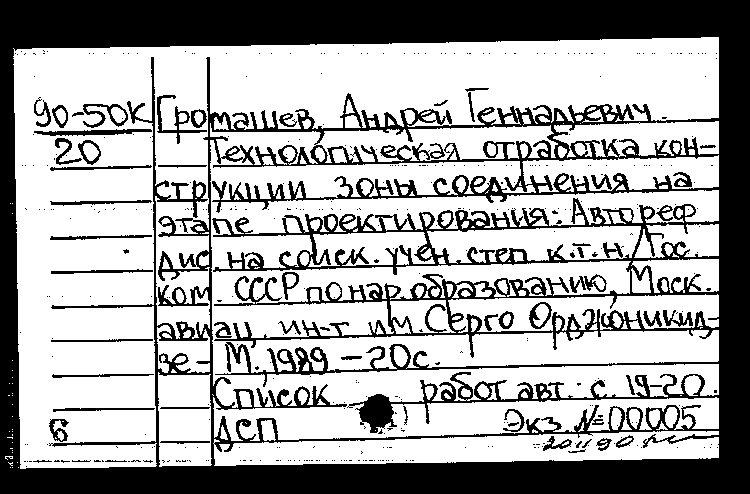 90-50К Громашев, Андрей Геннадьевич.
20 Технологическая отработка кон-
струкции зоны соединения на
этапе проектирования: Автореф
дис. на соиск. учен. степ к.т.н./Гос.
ком. СССР по нар. образованию, Моск.
авиац. ин-т им. Серго Орджоникид-
зе - М., 1989. - 20с.
Список работ авт.: с. 19-20.
6 ДСП Экз. №00005